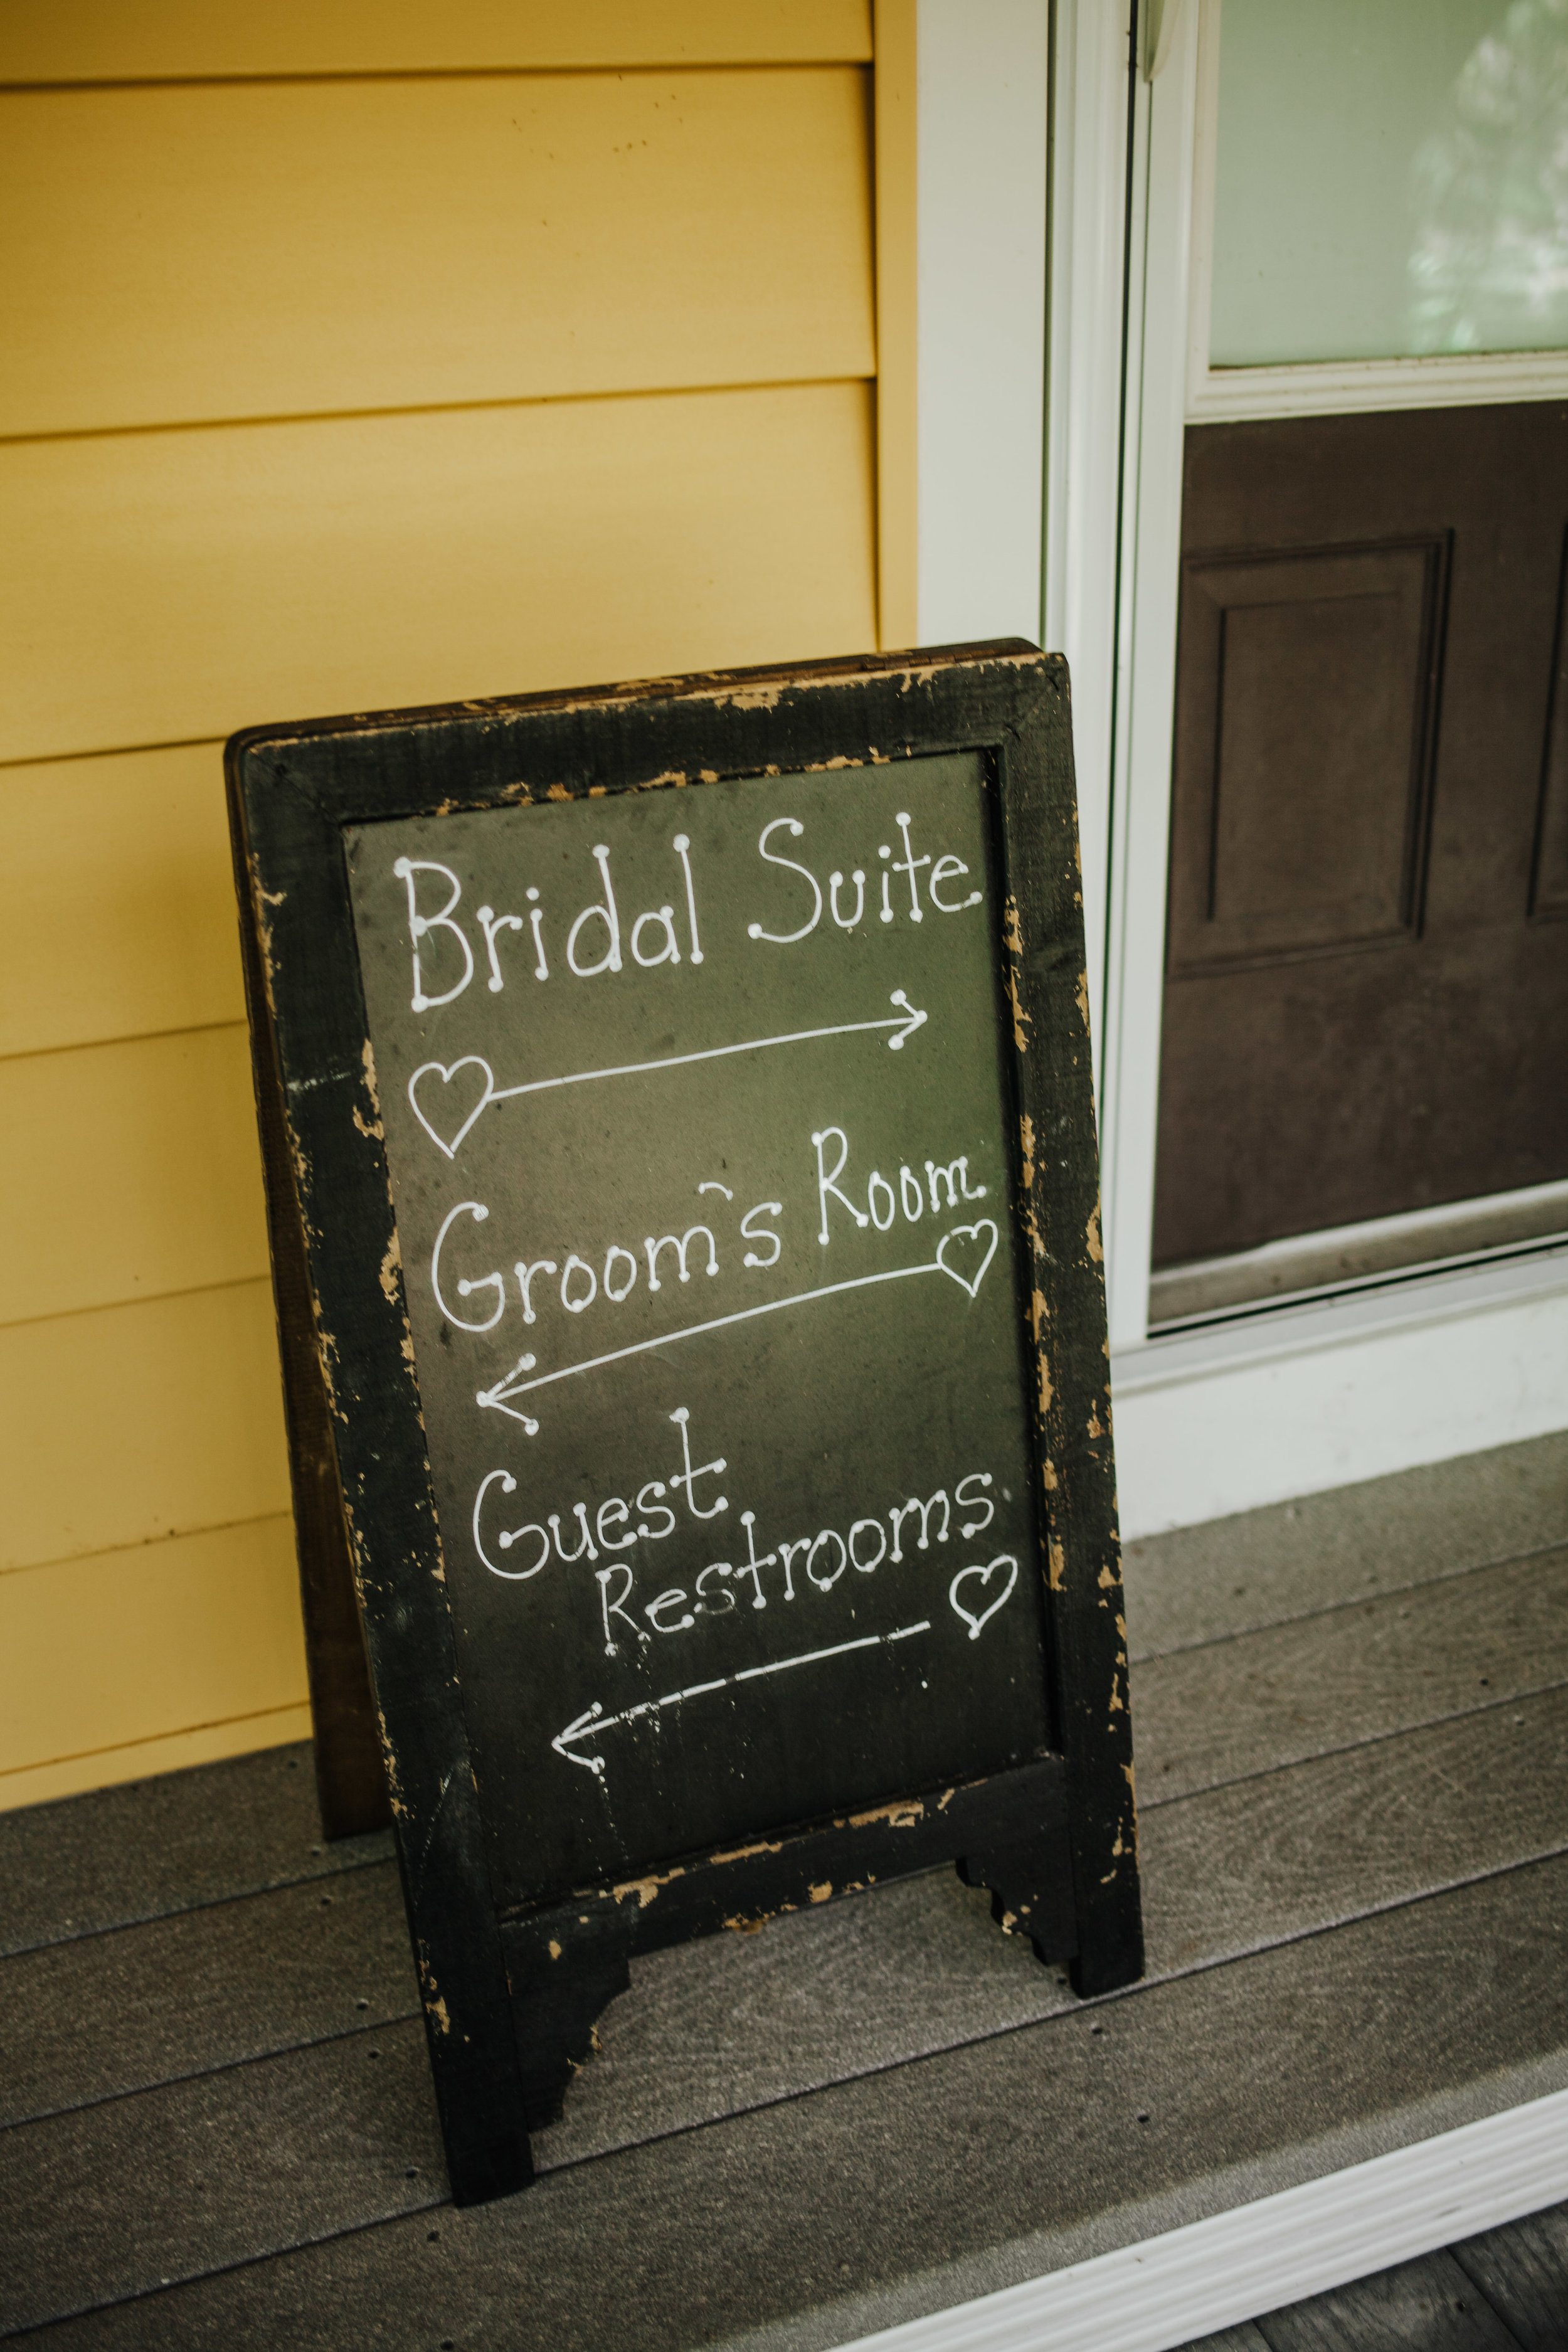 Bridal Suite
Groom's Room
Guest
Restrooms